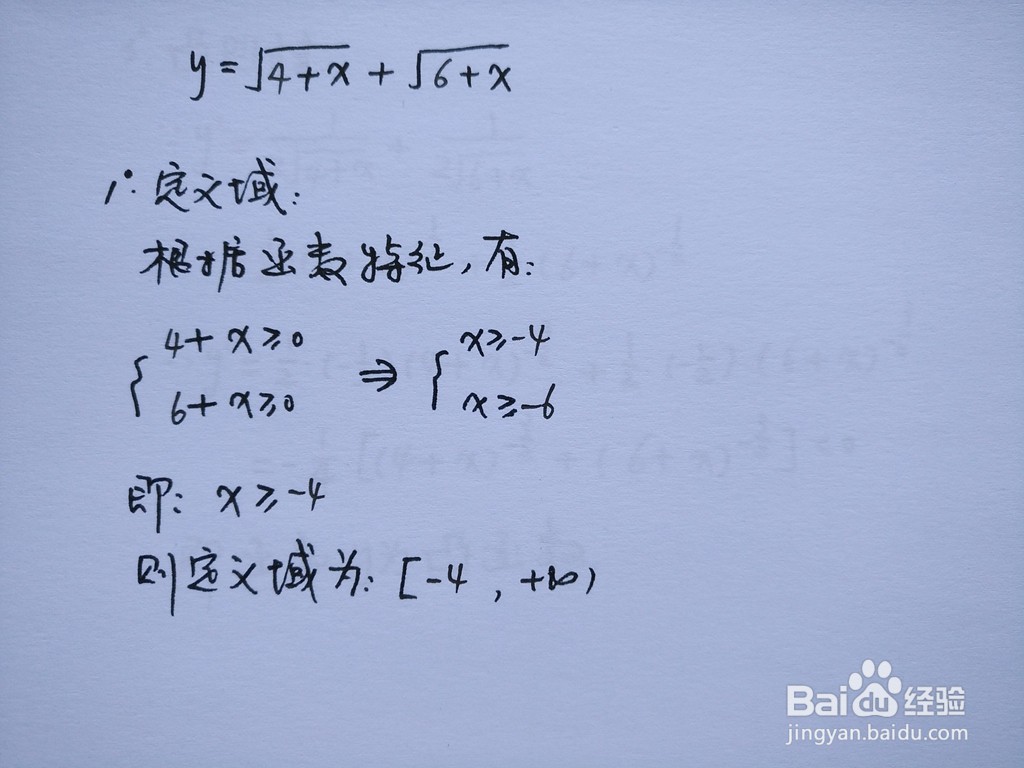 y=√(4+x)+√(6+x)
1°.定义域:
根据函数特征,有:
{4+x≥0 ⇒ {x≥-4
6+x≥0 x≥-6
即: x≥-4
则定义域为: [-4, +∞)
Bai du 经验
jingyan.baidu.com